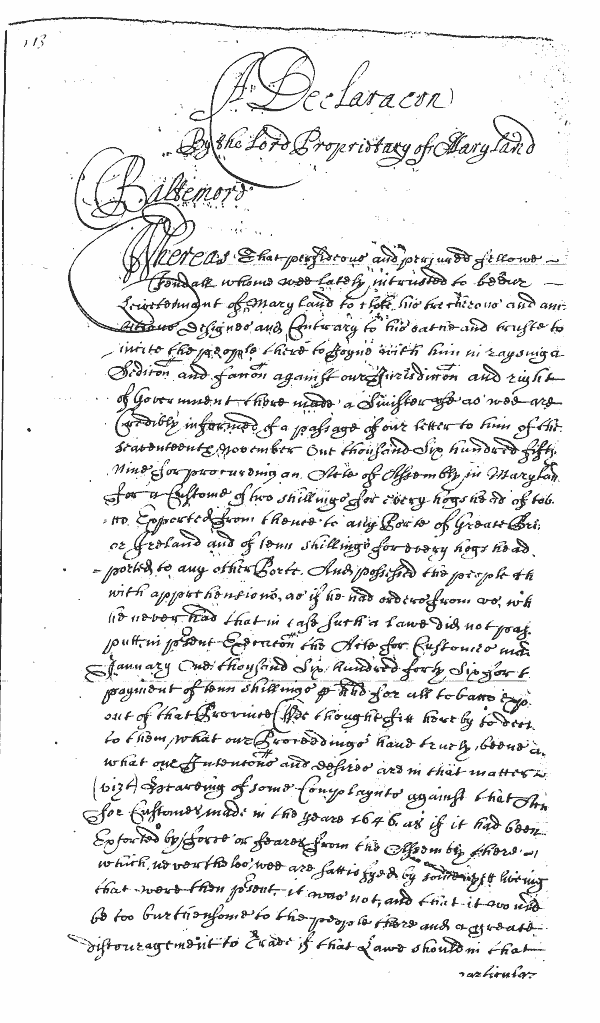 113
A Declaracon
By the Lord Proprietary of Maryland
Baltemore
Whereas That perfideous and perjured fellowe
Fendall whome wee lately intrusted to bee our
Leivetennant of Maryland to his trecherous and am
bitious designes and Contrary to his oathe and truste to
incite the people there to Joyne with him in raysing a
Sedicon and faccon against our Jurisdiccon and right
of Government there made a Sinister use as wee are
Credibly informed of a passage of our letter to him of the
November One thousand Six hundred fifty
Nine for procureing an Acte of Assembly in Marylan
for a Custome of two shillings for every hogshead of tob
Exported from thence to any Porte of Great Bri
or Ireland and of tenn shillings for every hogshead
ported to any other Porte. And possessed the people th
with apprehentions, as if he had orders from us, wh
he never had that in case such a lawe did not pas
putt in present Execucon the Acte for Customes mad
January One thousand Six hundred forty Six for t
payment of tenn shillings p hhd for all tobacco exp
out of that Province Wee thought fitt hereby to decl
to them, what our Proceedings have truely beene a
what our Intentons and desires are in that matter
(vizt) Heareing of some Complaynts against that
for Customes made in the yeare 1646. as if it had been
Extorted by force or feare from the Assembly there
which nevertheles, wee are sattisfyed by some yett liveing
that were then present, it was not, and that it would
be too burthensome to the people there and a greate
discouragement to Trade if that Lawe should in that
particular